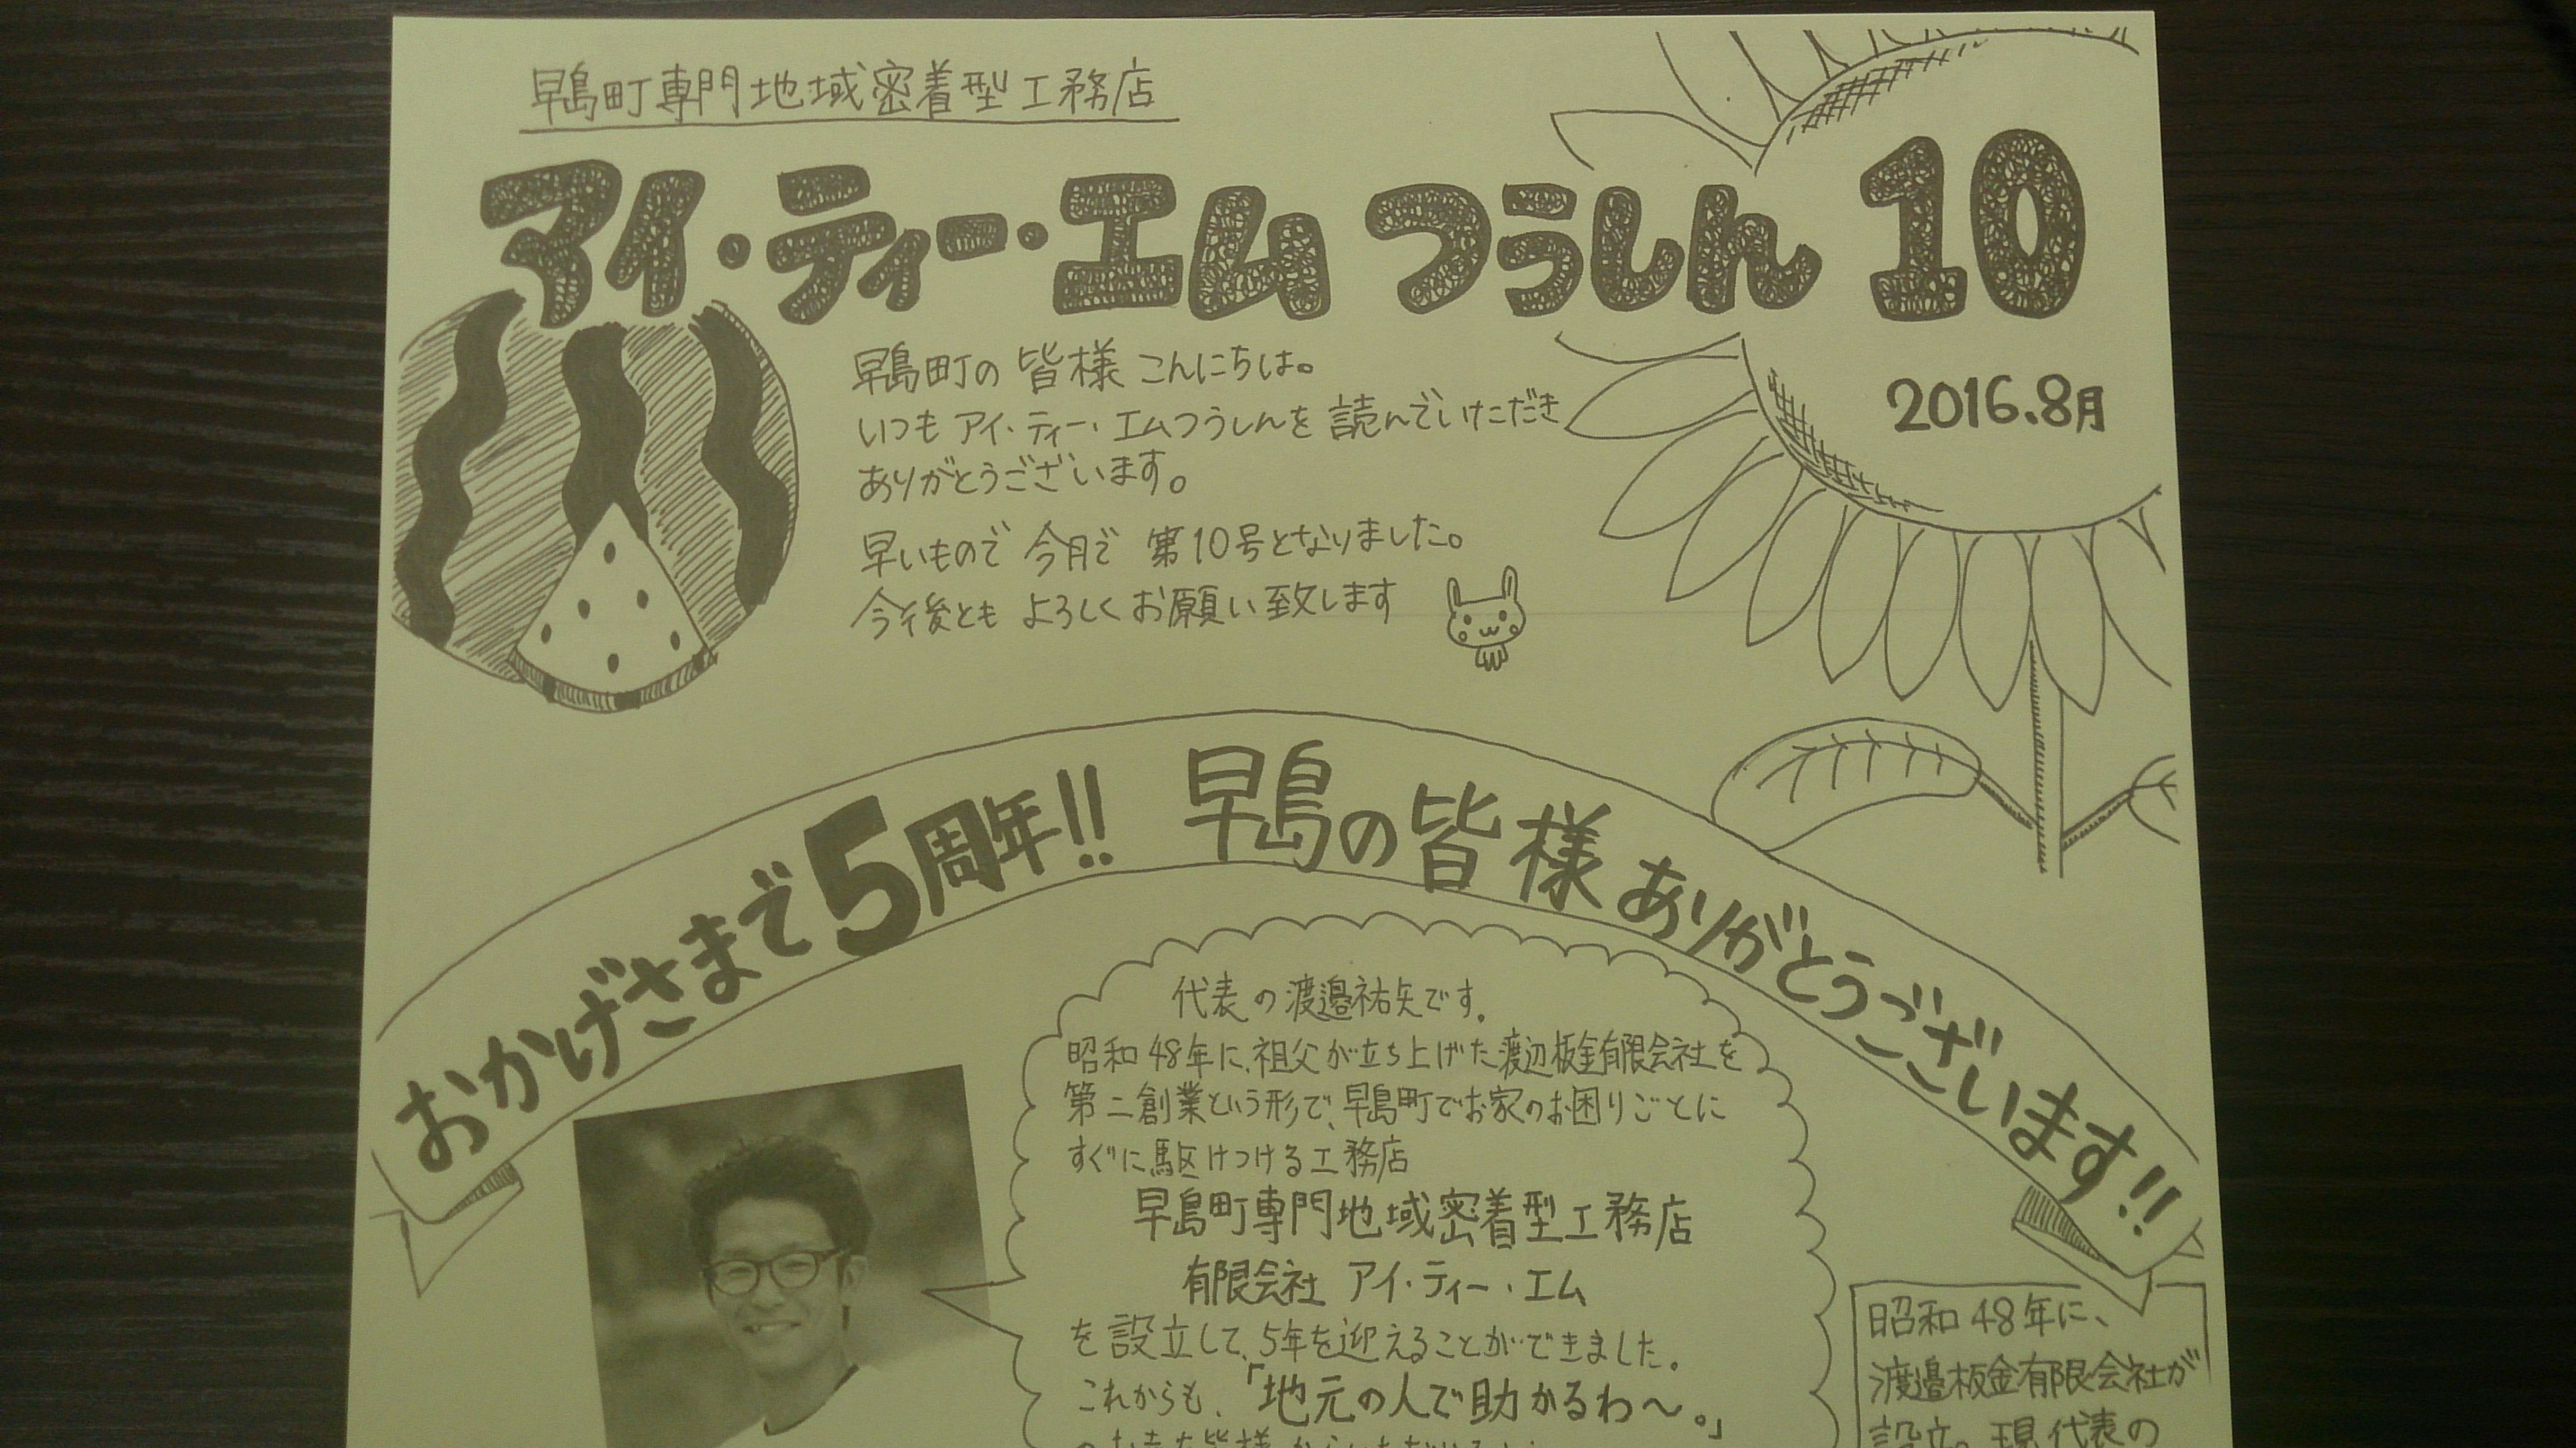 早島町専門地域密着型工務店
アイ・ティー・エム つうしん 10
2016.8月
早島町の 皆様 こんにちは。
いつも アイ・ティー・エムつうしんを 読んでいただき
ありがとうございます。
早いもので 今月で 第10号となりました。
今後とも よろしくお願い致します
おかげさまで5周年!! 早島の皆様ありがとうございます!!
代表の渡邉祐矢です.
昭和48年に、祖父が立ち上げた渡辺板金有限会社を
第二創業という形で、早島町でお家のお困りごとに
すぐに駆けつける工務店
早島町専門地域密着型工務店
有限会社 アイ・ティー・エム
を設立して、5年を迎えることができました.
これからも、「地元の人で助かるわ〜。」
昭和48年に、
渡邉板金有限会社が
設立。現代表の